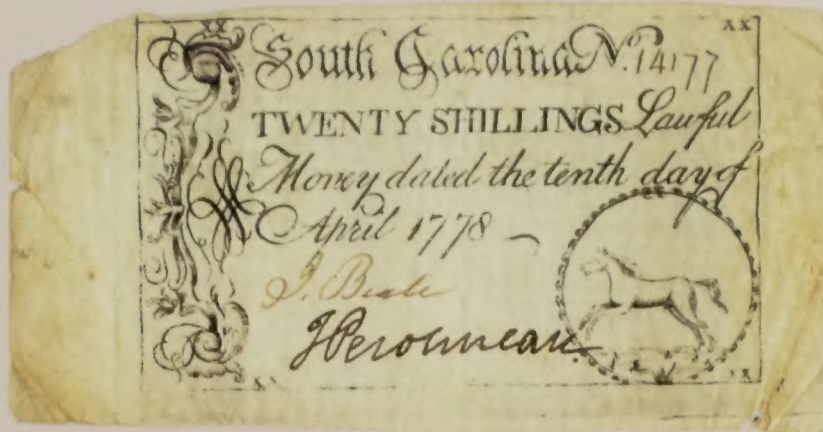 XX
XX
South Carolina No. 14177
TWENTY SHILLINGS Lawful
Money dated the tenth day of
April 1778
J. Beale
HPeronneau
XX
XX